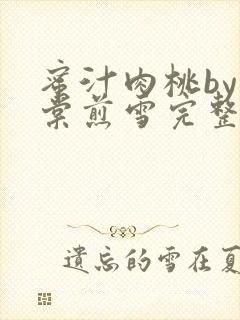 蜜汁肉桃by
棠煎雪完整
遺忘的雪在夏